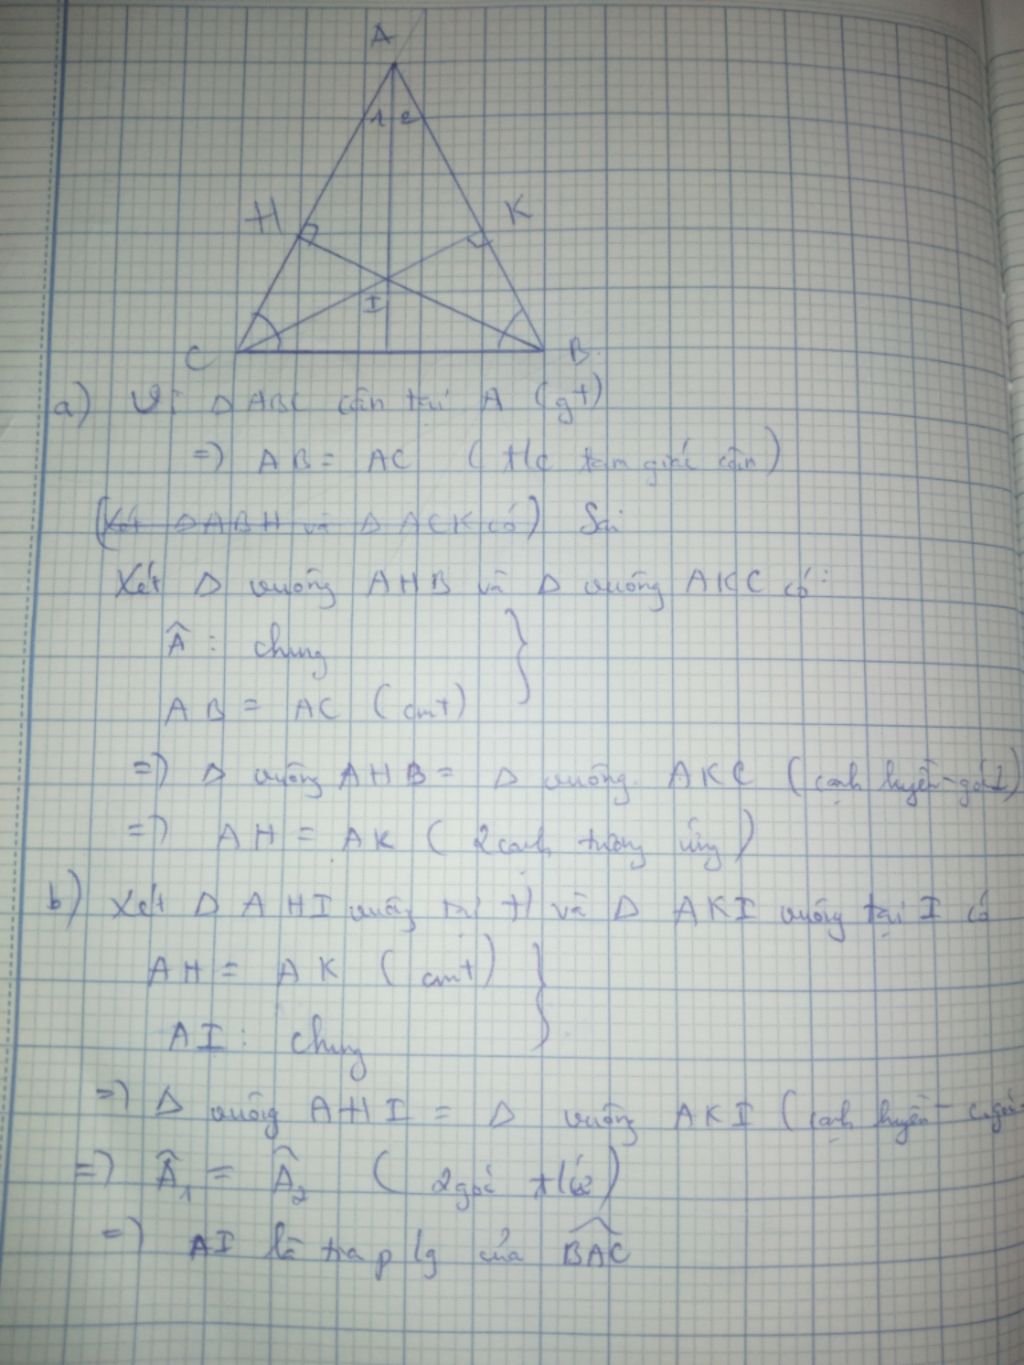 A
1 2
H K
I
C B
a) Vì Δ ABC cân tại A (gt)
=) AB = AC (t/c tam giác cân)
(Xét Δ ABH và Δ ACK có) Sai
Xét Δ vuông AHB và Δ vuông AKC có:
Â : chung
AB = AC (cmt)
=) Δ vuông AHB = Δ vuông AKC (cạnh huyền-góc
=) AH = AK (2 cạnh tương ứng)
b) Xét Δ AHI vuông tại H và Δ AKI vuông tại I có
AH = AK (cmt)
AI : chung
=) Δ vuông AHI = Δ vuông AKI (cạnh huyền -
=) Â₁ = Â₂ (2 góc t/ứ)
=) AI là tia p/g của BAC